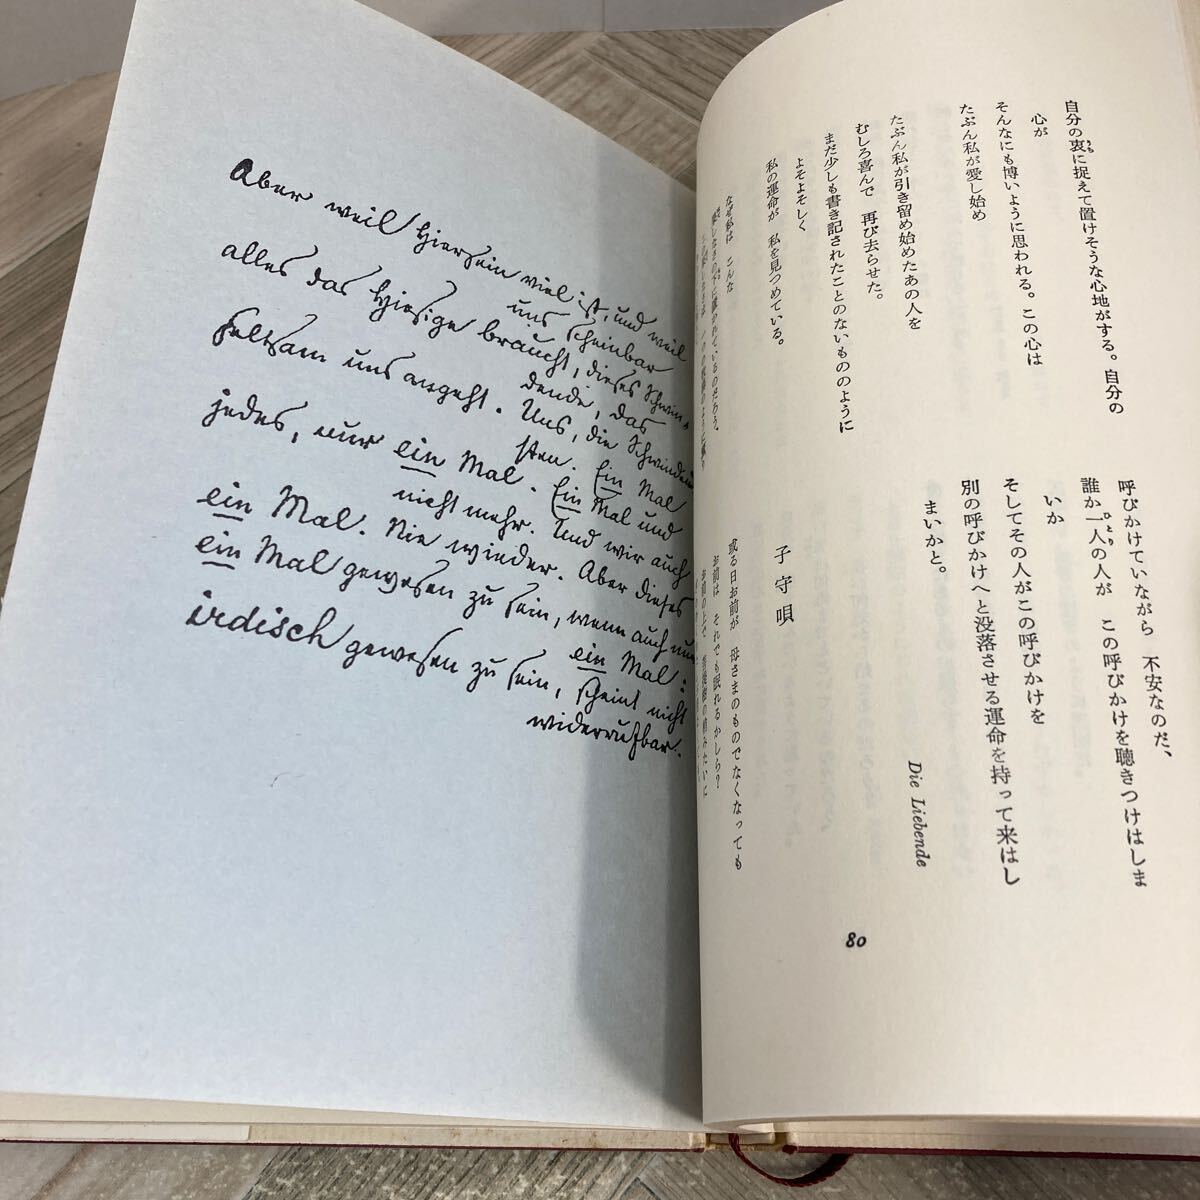 Aber weil Hiersein viel ist, und weil
uns scheinbar
alles das Hiesige braucht, dieses Schwin-
dende, das
seltsam uns angeht. Uns, die Schwindend
sten. Ein Mal
jedes, nur ein Mal. Ein Mal und
nicht mehr. Und wir auch
ein Mal. Nie wieder. Aber dieses
ein Mal gewesen zu sein, wenn auch nur
ein Mal:
irdisch gewesen zu sein, scheint nicht
widerrufbar.
自分の裏に捉えて置けそうな心地がする。自分の
心が
そんなにも博いように思われる。この心は
たぶん私が愛し始め
たぶん私が引き留め始めたあの人を
むしろ喜んで 再び去らせた。
まだ少しも書き記されたことのないもののように
よそよそしく
私の運命が 私を見つめている。
なぜ私は こんな
呼びかけていながら 不安なのだ、
誰か一人の人が この呼びかけを聴きつけはしま
いか
そしてその人がこの呼びかけを
別の呼びかけへと没落させる運命を持って来はし
まいかと。
Die Liebende
子守唄
或る日お前が 母さまのものでなくなっても
お前は それでも眠れるかしら?
80